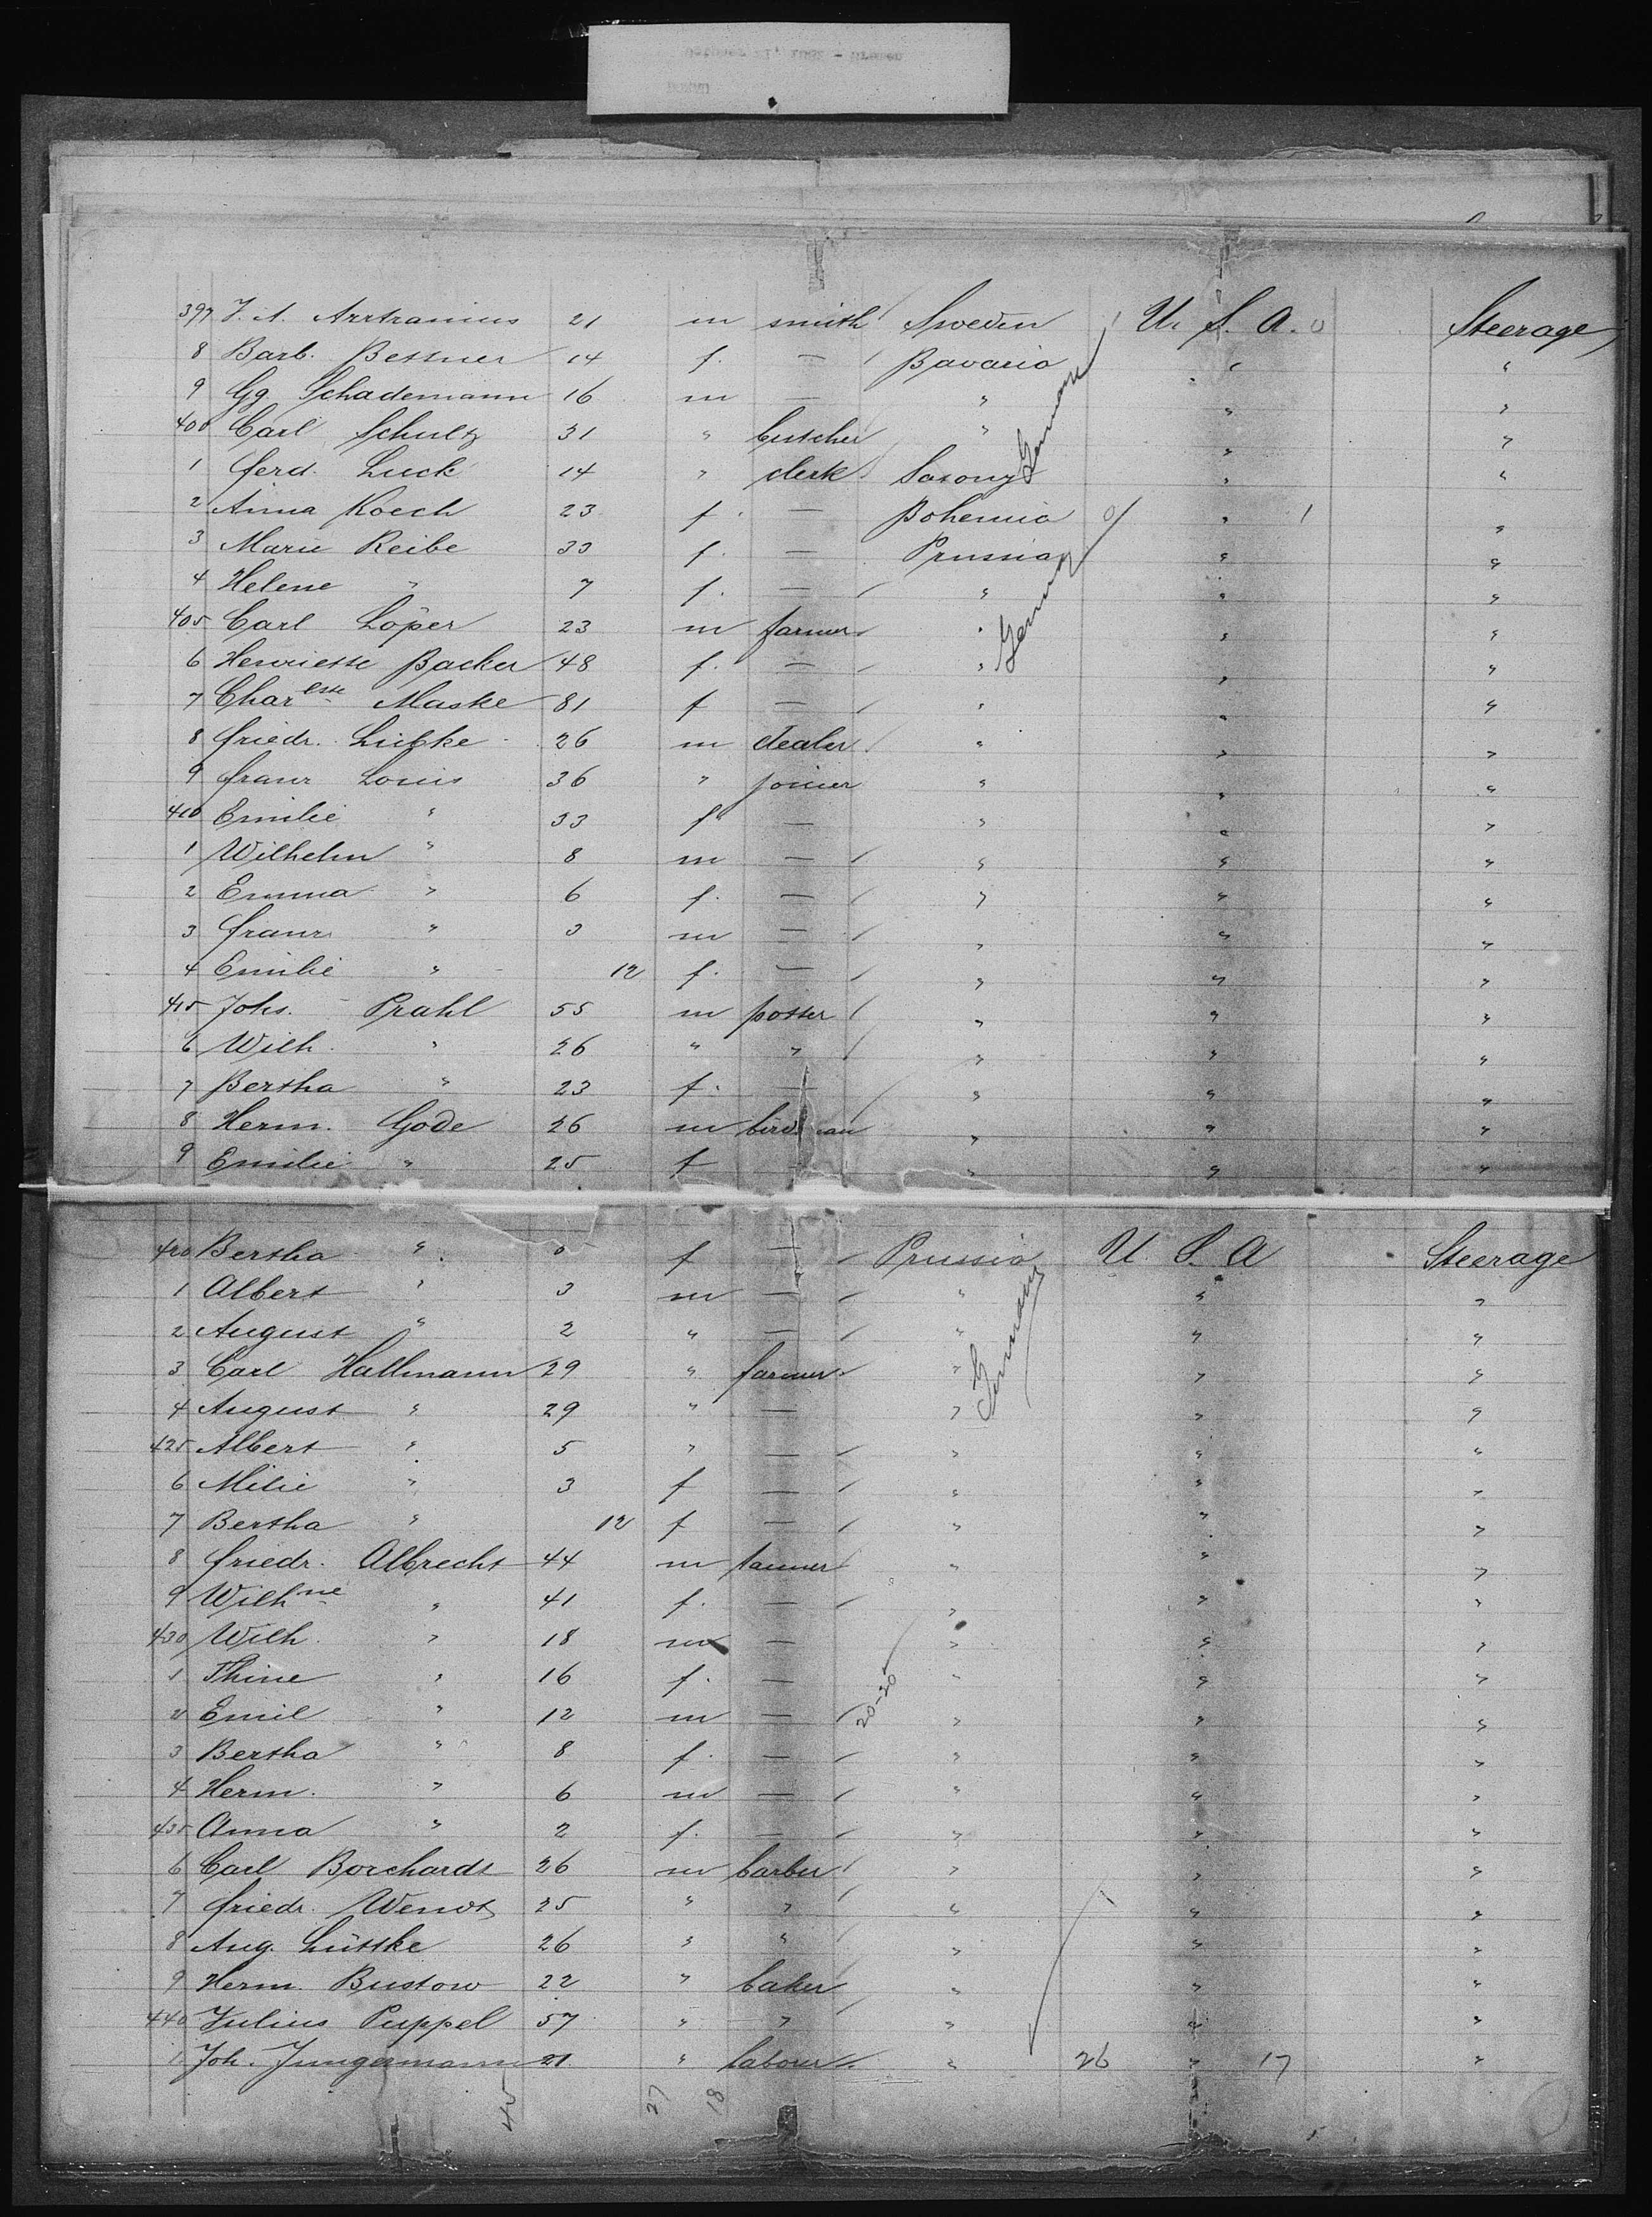 397 J. A. Arrtranius 21 m smith Sweden U. S. A. Steerage
8 Barb. Bessner 14 f. — Bavaria " "
9 Gg Schademann 16 m — " " "
400 Carl Schultz 31 " butcher " " "
1 Ferd. Luck 14 " clerk Saxony " "
Germany
2 Anna Koech 23 f. — Bohemia 0/ " 1 "
3 Marie Reibe 33 f. — Prussia " "
4 Helene " 7 f. — " " "
405 Carl Löper 23 m farmer " " "
Germany
6 Henriette Backer 48 f. — " " "
7 Charesse Maske 81 f — " " "
8 Friedr. Lübke 26 m dealer " " "
9 Franz Louis 36 " joiner " " "
410 Emilie " 33 f — " " "
1 Wilhelm " 8 m — " " "
2 Emma " 6 f. — " " "
3 Franz " 3 m — " " "
4 Emilie " 12 f. — " " "
415 Johs. Prahl 55 m potter " " "
6 Wilh. " 26 " " " " "
7 Bertha " 23 f. — " " "
8 Herm. Gode 26 m " " "
9 Emilie " 25 f " " "
420 Bertha " f — Prussia U. S. A Steerage
1 Albert " 3 m — " " "
2 August " 2 " — " " "
Germany
3 Carl Hallmann 29 " farmer " " "
4 August " 29 " — " " "
425 Albert " 5 " — " " "
6 Milie " 3 f — " " "
7 Bertha " 12 f — " " "
8 Friedr. Albrecht 44 m tanner " " "
9 Wilhne " 41 f. — " " "
430 Wilh. " 18 m — " " "
1 Thine " 16 f. — " " "
20-20
2 Emil " 12 m — " " "
3 Bertha " 8 f. — " " "
4 Herm. " 6 m — " " "
435 Anna " 2 f. — " " "
6 Carl Borchardt 26 m barber " " "
7 Friedr. Wendt 25 " " " " "
8 Aug. Lüttke 26 " " " " "
9 Herm. Bustow 22 " baker " " "
440 Julius Puppel 57 " " " " "
1 Joh. Jungermann 21 " labourer " 26 " 17 "
45 27 18